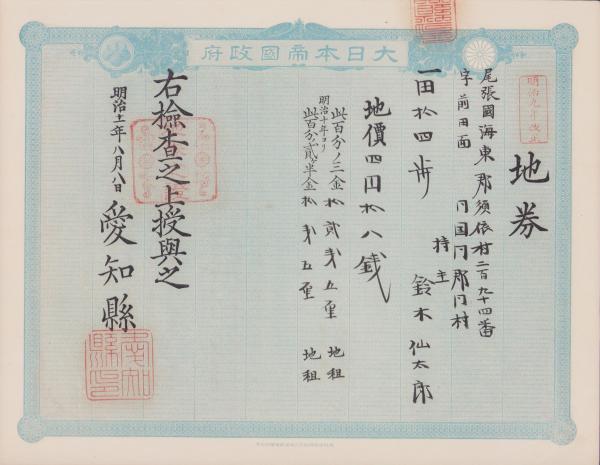 大日本帝國政府
明治九年改正
地券
尾張國海東郡須依村二百九十四番
字前田面 同国同郡同村
一田拾四歩 持主 鈴木仙太郎
地價四円拾八銭
此百分ノ三金拾貳銭五厘 地租
明治十年ヨリ
此百分ノ貳半金拾銭五厘 地租
右檢査之上授與之
明治十一年八月八日 愛知縣
愛知縣印